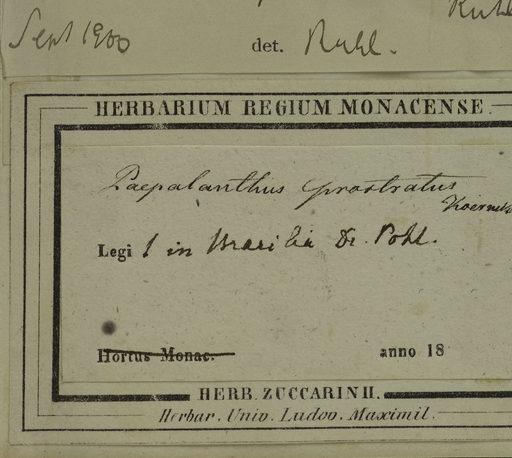 Sept 1900
det. Ruhl.
HERBARIUM REGIUM MONACENSE.
Paepalanthus prostratus
Koernick
Legi t in Brasilia Dr. Pohl.
Hortus Monac.
anno 18
HERB. ZUCCARINII.
Herbar. Univ. Ludov. Maximil.